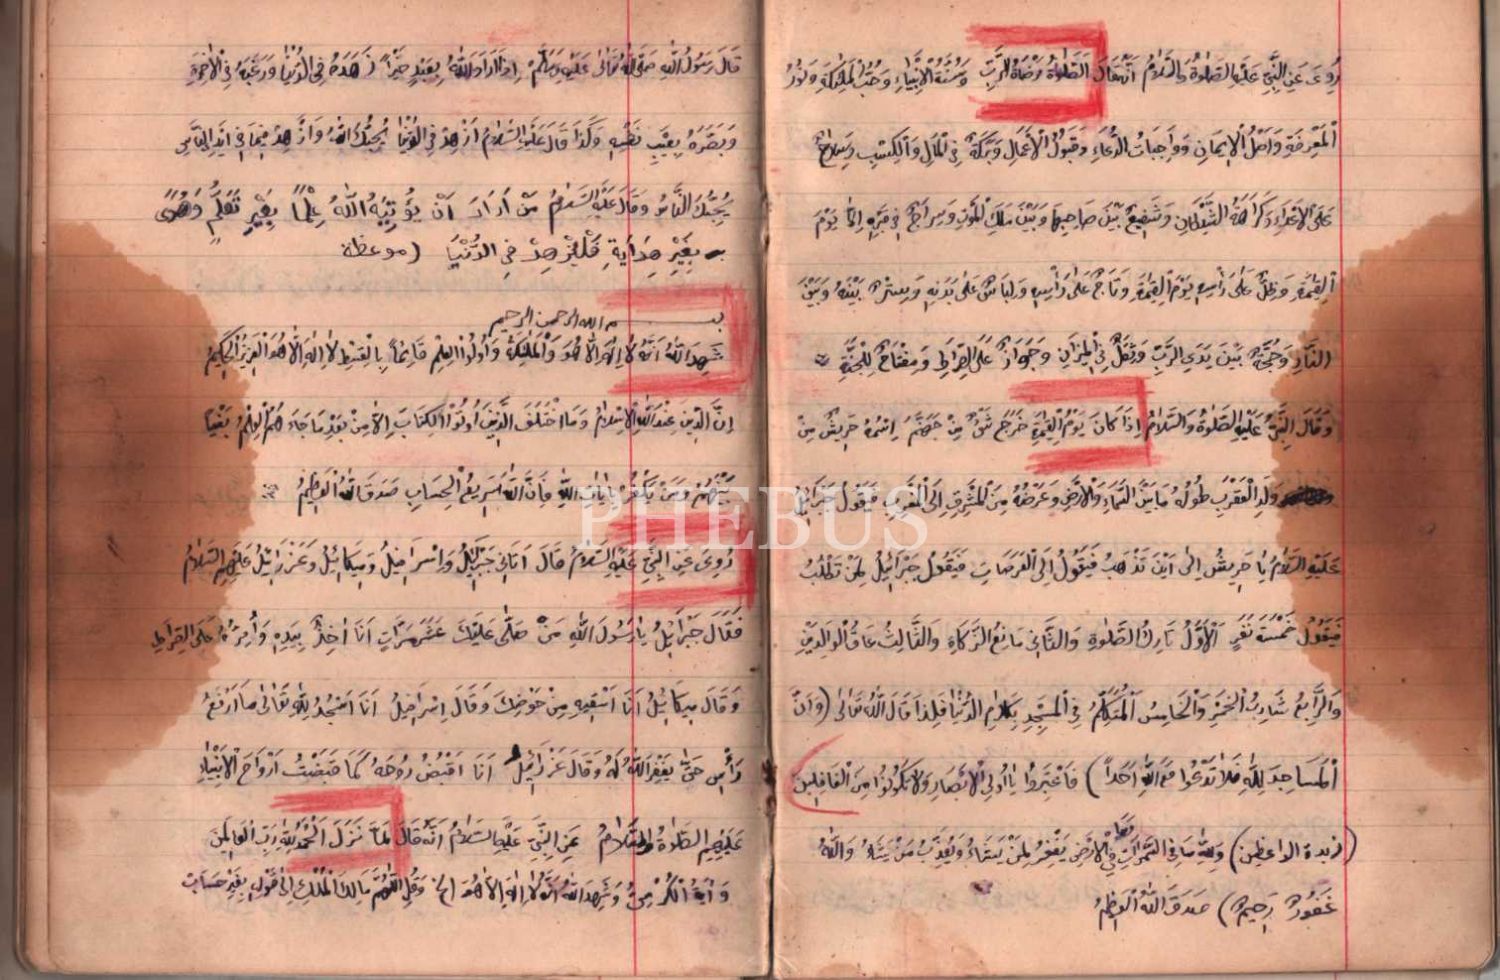 رُوِىَ عَنِ النَّبِىِّ عَلَيْهِ الصَّلٰوةُ وَالسَّلَامُ اَنَّهُ قَالَ اَلصَّلٰوةُ مَرْضَاةُ الرَّبِّ وَسُنَّةُ الْاَنْبِيَاءِ وَحُبُّ الْمَلٰئِكَةِ وَنُورُ
الْمَعْرِفَةِ وَاَصْلُ الْاِيمَانِ وَاِجَابَاتُ الدُّعَاءِ وَقَبُولُ الْاَعْمَالِ وَبَرَكَةٌ فِى الْمَالِ وَالْكَسْبِ وَسِلَاحٌ
عَلَى الْاَعْدَاءِ وَكَرَاهَةُ الشَّيْطَانِ وَشَفِيعٌ بَيْنَ صَاحِبِهَا وَبَيْنَ مَلَكِ الْمَوْتِ وَسِرَاجٌ فِى قَبْرِهِ اِلٰى يَوْمِ
الْقِيٰمَةِ وَظِلٌّ عَلٰى رَأْسِهِ يَوْمَ الْقِيٰمَةِ وَتَاجٌ عَلٰى رَأْسِهِ وَلِبَاسٌ عَلٰى بَدَنِهِ وَسِتْرٌ بَيْنَهُ وَبَيْنَ
النَّارِ وَحُجَّةٌ بَيْنَ يَدَىِ الرَّبِّ وَثِقَلٌ فِى الْمِيزَانِ وَجَوَازٌ عَلَى الصِّرَاطِ وَمِفْتَاحٌ لِلْجَنَّةِ
وَقَالَ النَّبِىُّ عَلَيْهِ الصَّلٰوةُ وَالسَّلَامُ اِذَا كَانَ يَوْمُ الْقِيٰمَةِ خَرَجَ شَىْءٌ مِنْ جَهَنَّمَ اِسْمُهُ حَرِيشٌ مِنْ
وَلَدِ الْعَقْرَبِ طُولُهُ مَا بَيْنَ السَّمَاءِ وَالْاَرْضِ وَعَرْضُهُ مِنَ الْمَشْرِقِ اِلَى الْمَغْرِبِ فَيَقُولُ جَبْرَائِيلُ
عَلَيْهِ السَّلَامُ يَا حَرِيشُ اِلٰى اَيْنَ تَذْهَبُ فَيَقُولُ اِلَى الْعَرَصَاتِ فَيَقُولُ جَبْرَائِيلُ لِمَنْ تَطْلُبُ
فَيَقُولُ خَمْسَةَ نَفَرٍ اَلْاَوَّلُ تَارِكُ الصَّلٰوةِ وَالثَّانِى مَانِعُ الزَّكَاةِ وَالثَّالِثُ عَاقُّ الْوَالِدَيْنِ
وَالرَّابِعُ شَارِبُ الْخَمْرِ وَالْخَامِسُ الْمُتَكَلِّمُ فِى الْمَسْجِدِ بِكَلَامِ الدُّنْيَا فَلِذَا قَالَ اللّٰهُ تَعَالٰى (وَاَنَّ
الْمَسَاجِدَ لِلّٰهِ فَلَا تَدْعُوا مَعَ اللّٰهِ اَحَداً) فَاعْتَبِرُوا يَا اُولِى الْاَبْصَارِ وَلَا تَكُونُوا مِنَ الْغَافِلِينَ
(زبدة الواعظين) وَلِلّٰهِ مَا فِى السَّمٰوَاتِ وَمَا فِى الْاَرْضِ يَغْفِرُ لِمَنْ يَشَاءُ وَيُعَذِّبُ مَنْ يَشَاءُ وَاللّٰهُ
غَفُورٌ رَحِيمٌ) صَدَقَ اللّٰهُ الْعَظِيمُ
قَالَ رَسُولُ اللّٰهِ صَلَّى اللّٰهُ تَعَالٰى عَلَيْهِ وَسَلَّمْ اِذَا اَرَادَ اللّٰهُ بِعَبْدٍ خَيْراً زَهَدَهُ فِى الدُّنْيَا وَرَغَّبَهُ فِى الْاٰخِرَةِ
وَبَصَّرَهُ بِعَيْبِ نَفْسِهِ وَكَذَا قَالَ عَلَيْهِ السَّلَامُ اَزْهِدْ فِى الدُّنْيَا يُحِبُّكَ اللّٰهُ وَاَزْهِدْ فِيمَا فِى اَيْدِ النَّاسِ
يُحِبُّكَ النَّاسُ وَقَالَ عَلَيْهِ السَّلَامُ مَنْ اَرَادَ اَنْ يُؤْتِيَهُ اللّٰهُ عِلْماً بِغَيْرِ تَعَلُّمٍ وَهُدًى
بِغَيْرِ هِدَايَةٍ فَلْيَزْهِدْ فِى الدُّنْيَا (موعظة
بسم الله الرحمن الرحيم
شَهِدَ اللّٰهُ اَنَّهُ لَا اِلٰهَ اِلَّا هُوَ وَالْمَلٰئِكَةُ وَاُولُوا الْعِلْمِ قَائِماً بِالْقِسْطِ لَا اِلٰهَ اِلَّا هُوَ الْعَزِيزُ الْحَكِيمُ
اِنَّ الدِّينَ عِنْدَ اللّٰهِ الْاِسْلَامُ وَمَا اخْتَلَفَ الَّذِينَ اُوتُوا الْكِتَابَ اِلَّا مِنْ بَعْدِ مَا جَاءَ هُمُ الْعِلْمُ بَغْيًا
بَيْنَهُمْ وَمَنْ يَكْفُرْ بِاٰيَاتِ اللّٰهِ فَاِنَّ اللّٰهَ سَرِيعُ الْحِسَابِ صَدَقَ اللّٰهُ الْعَظِيمُ
رُوِىَ عَنِ النَّبِىِّ عَلَيْهِ السَّلَامُ قَالَ اَتَانِى جَبْرَائِيلُ وَاِسْرَافِيلُ وَمِيكَائِيلُ وَعَزْرَائِيلُ عَلَيْهِمُ السَّلَامُ
فَقَالَ جَبْرَائِيلُ يَا رَسُولَ اللّٰهِ مَنْ صَلّٰى عَلَيْكَ عَشَرَ مَرَّاتٍ اَنَا اٰخِذٌ بِيَدِهِ وَاُمِرُّهُ عَلَى الصِّرَاطِ
وَقَالَ مِيكَائِيلُ اَنَا اَسْقِيهِ مِنْ حَوْضِكَ وَقَالَ اِسْرَافِيلُ اَنَا اَسْجُدُ لِلّٰهِ تَعَالٰى مَا اَرْفَعُ
رَأْسِى حَتّٰى يَغْفِرَ اللّٰهُ لَهُ وَقَالَ عَزْرَائِيلُ اَنَا اَقْبِضُ رُوحَهُ كَمَا قَبَضْتُ اَرْوَاحَ الْاَنْبِيَاءِ
عَلَيْهِمُ الصَّلٰوةُ وَالسَّلَامُ عَنِ النَّبِىِّ عَلَيْهِ السَّلَامُ اَنَّهُ قَالَ لَمَّا نَزَلَ اَلْحَمْدُ لِلّٰهِ رَبِّ الْعَالَمِينَ
وَاٰيَةُ الْكُرْسِىِّ وَشَهِدَ اللّٰهُ اَنَّهُ لَا اِلٰهَ اِلَّا هُوَ الخ وَقُلِ اللّٰهُمَّ مَالِكَ الْمُلْكِ اِلٰى قَوْلِهِ بِغَيْرِ حِسَابٍ
PHEBUS